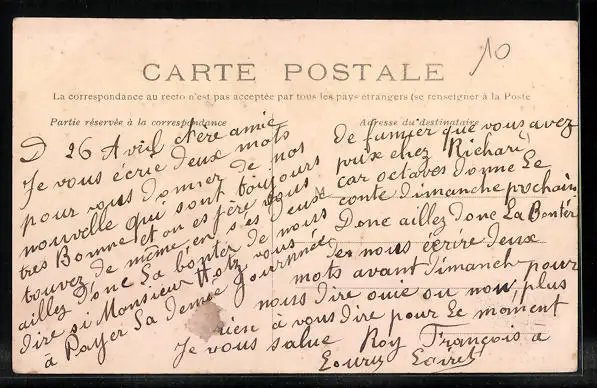 10
CARTE POSTALE
La correspondance au recto n'est pas acceptée par tous les pays étrangers (se renseigner à la Poste
Partie réservée à la correspondance
Adresse du destinataire
D 26 Avril chère amie
Je vous écrie deux mots
pour vous donner de nos
nouvelle qui sont toujours
très Bonne et on espère vous
touvez de même en s'es deux
aillez donc La bonter de nous
dire si Monsieur vous
à Payer Sa demie Journnée
de fumier que vous avez
prix chez Richard
car octaves donne Le
conte dimanche prochain
Donc aillez donc La Bonter
de nous écrire deux
mots avant dimanch pour
nous dire ouie ou non plus
rien à vous dire pour Le moment
Je vous salue Roy François à
Loury Loiret
M